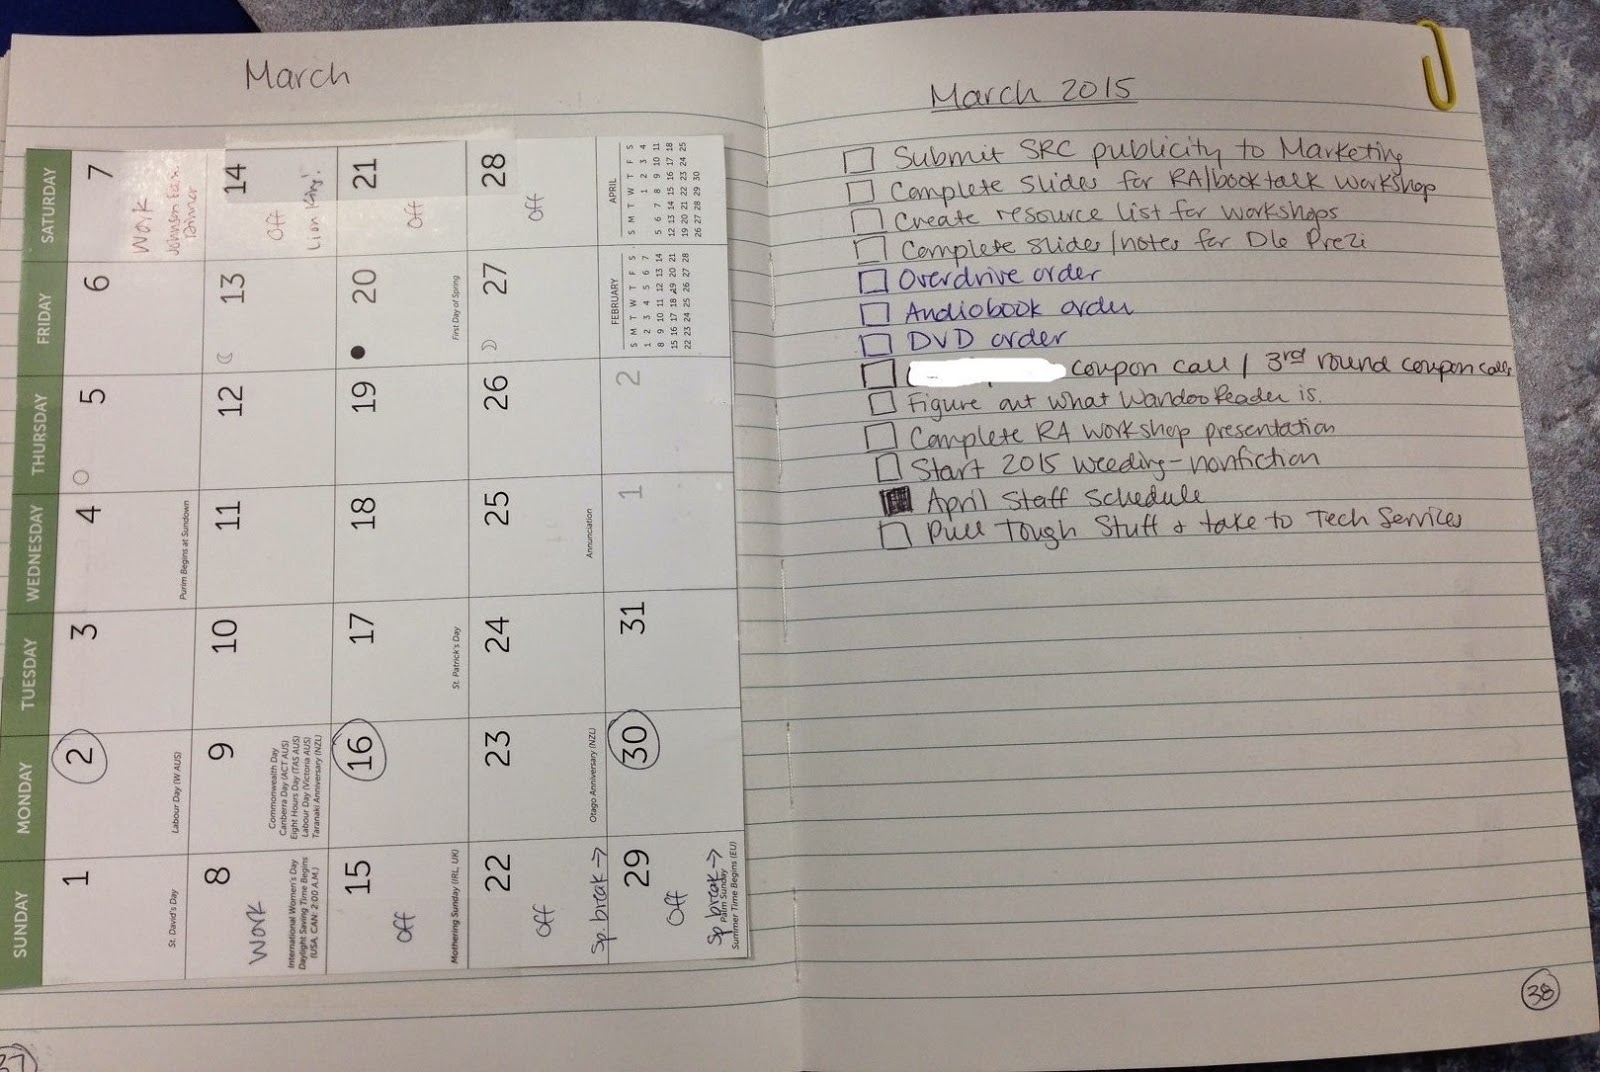 March
SUNDAY MONDAY TUESDAY WEDNESDAY THURSDAY FRIDAY SATURDAY
1
St. David's Day
2
Labour Day (W AUS)
3
4
Purim Begins at Sundown
5
6
7
Work
Dinner
8
Work
International Women's Day
Daylight Saving Time Begins
(USA, CAN: 2:00 A.M.)
9
Commonwealth Day
Canberra Day (ACT AUS)
Eight Hours Day (TAS AUS)
Labour Day (Victoria AUS)
Taranaki Anniversary (NZL)
10
11
12
13
14
Off
Lion King!
15
Off
Mothering Sunday (IRL, UK)
16
17
St. Patrick's Day
18
19
20
First Day of Spring
21
Off
22
Off
Sp. break →
23
Otago Anniversary (NZL)
24
25
Annunciation
26
27
28
Off
29
Off
Sp. break →
Palm Sunday
Summer Time Begins (EU)
30
31
1
2
FEBRUARY
S M T W T F S
1 2 3 4 5 6 7
8 9 10 11 12 13 14
15 16 17 18 19 20 21
22 23 24 25 26 27 28
APRIL
S M T W T F S
1 2 3 4
5 6 7 8 9 10 11
12 13 14 15 16 17 18
19 20 21 22 23 24 25
26 27 28 29 30
37
March 2015
Submit SRC publicity to Marketing
Complete slides for RA/booktalk workshop
Create resource list for workshops
Complete slides/notes for Dle Prezi
Overdrive order
Audiobook order
DVD order
coupon call / 3rd round coupon calls
Figure out what WandooReader is.
Complete RA workshop presentation
Start 2015 weeding - nonfiction
April Staff Schedule
Pull Tough Stuff + take to Tech Services
38